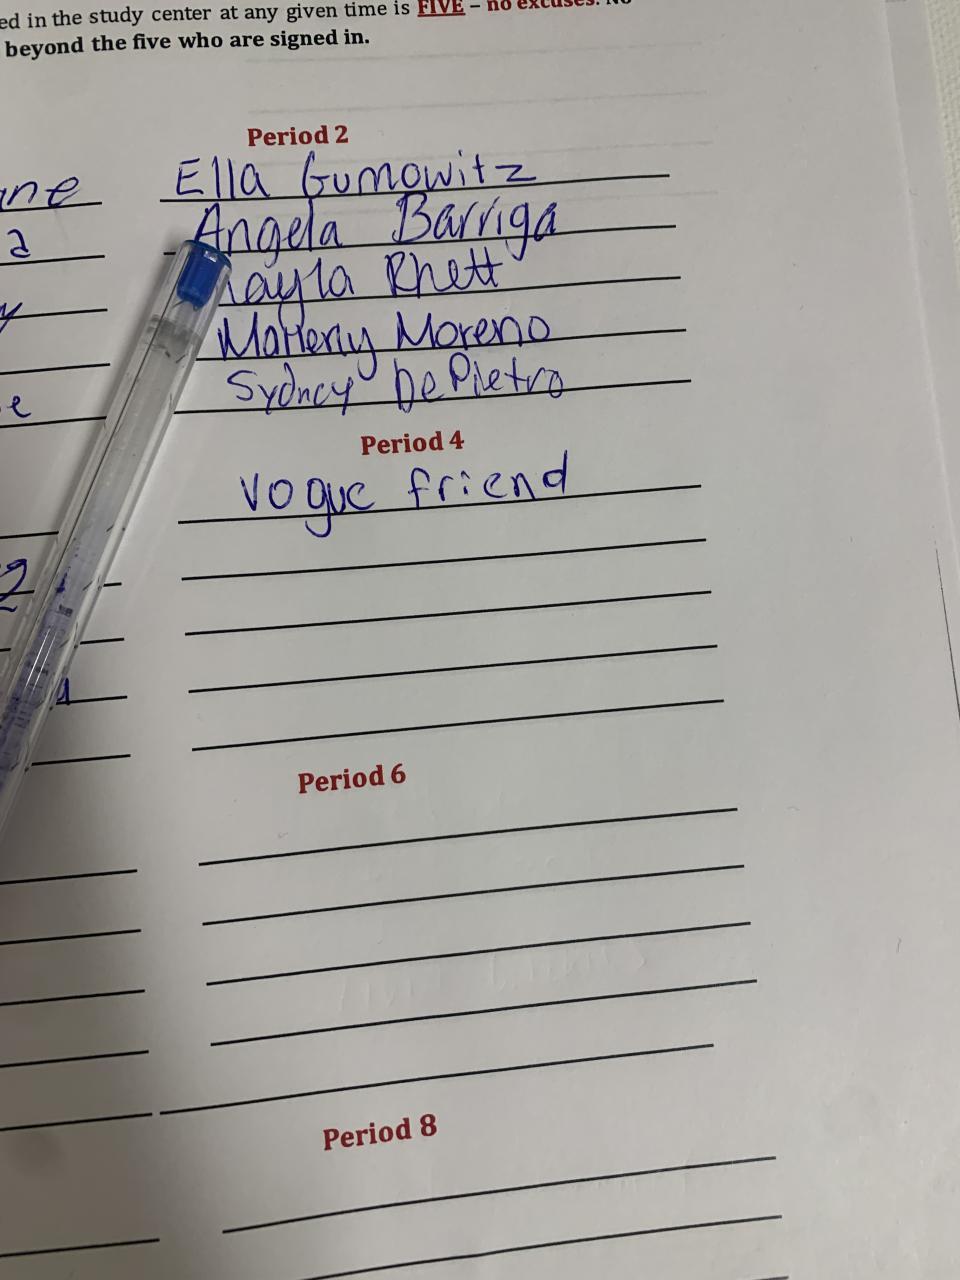 ed in the study center at any given time is FIVE – no excuses. No
beyond the five who are signed in.
Period 2
Ella Gumowitz
Angela Barriga
Rhett
Moreno
Sydney DePietro
Period 4
Vogue friend
Period 6
Period 8